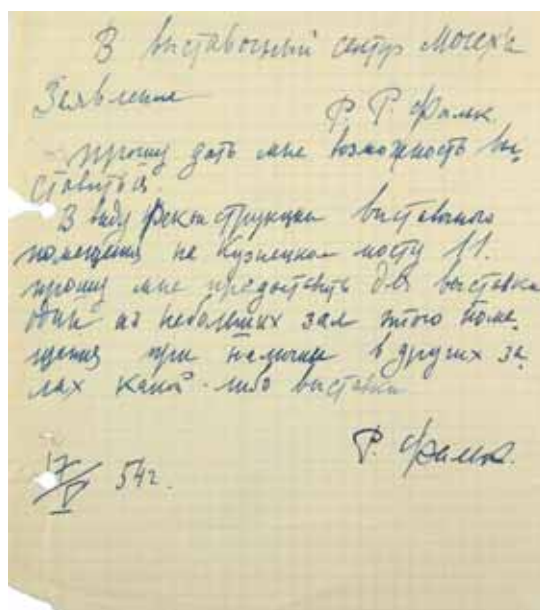 В выставочный сектор Моссха
Заявление
Р. Р. Фальк.
прошу дать мне возможность вы-
ставиться.
В виду реконструкции выставочного
помещения на Кузнецком мосту 11.
прошу мне предоставить для выставки
один из небольших зал этого поме-
щения при наличии в других за-
лах какой-либо выставки
Р. Фальк.
54 г.